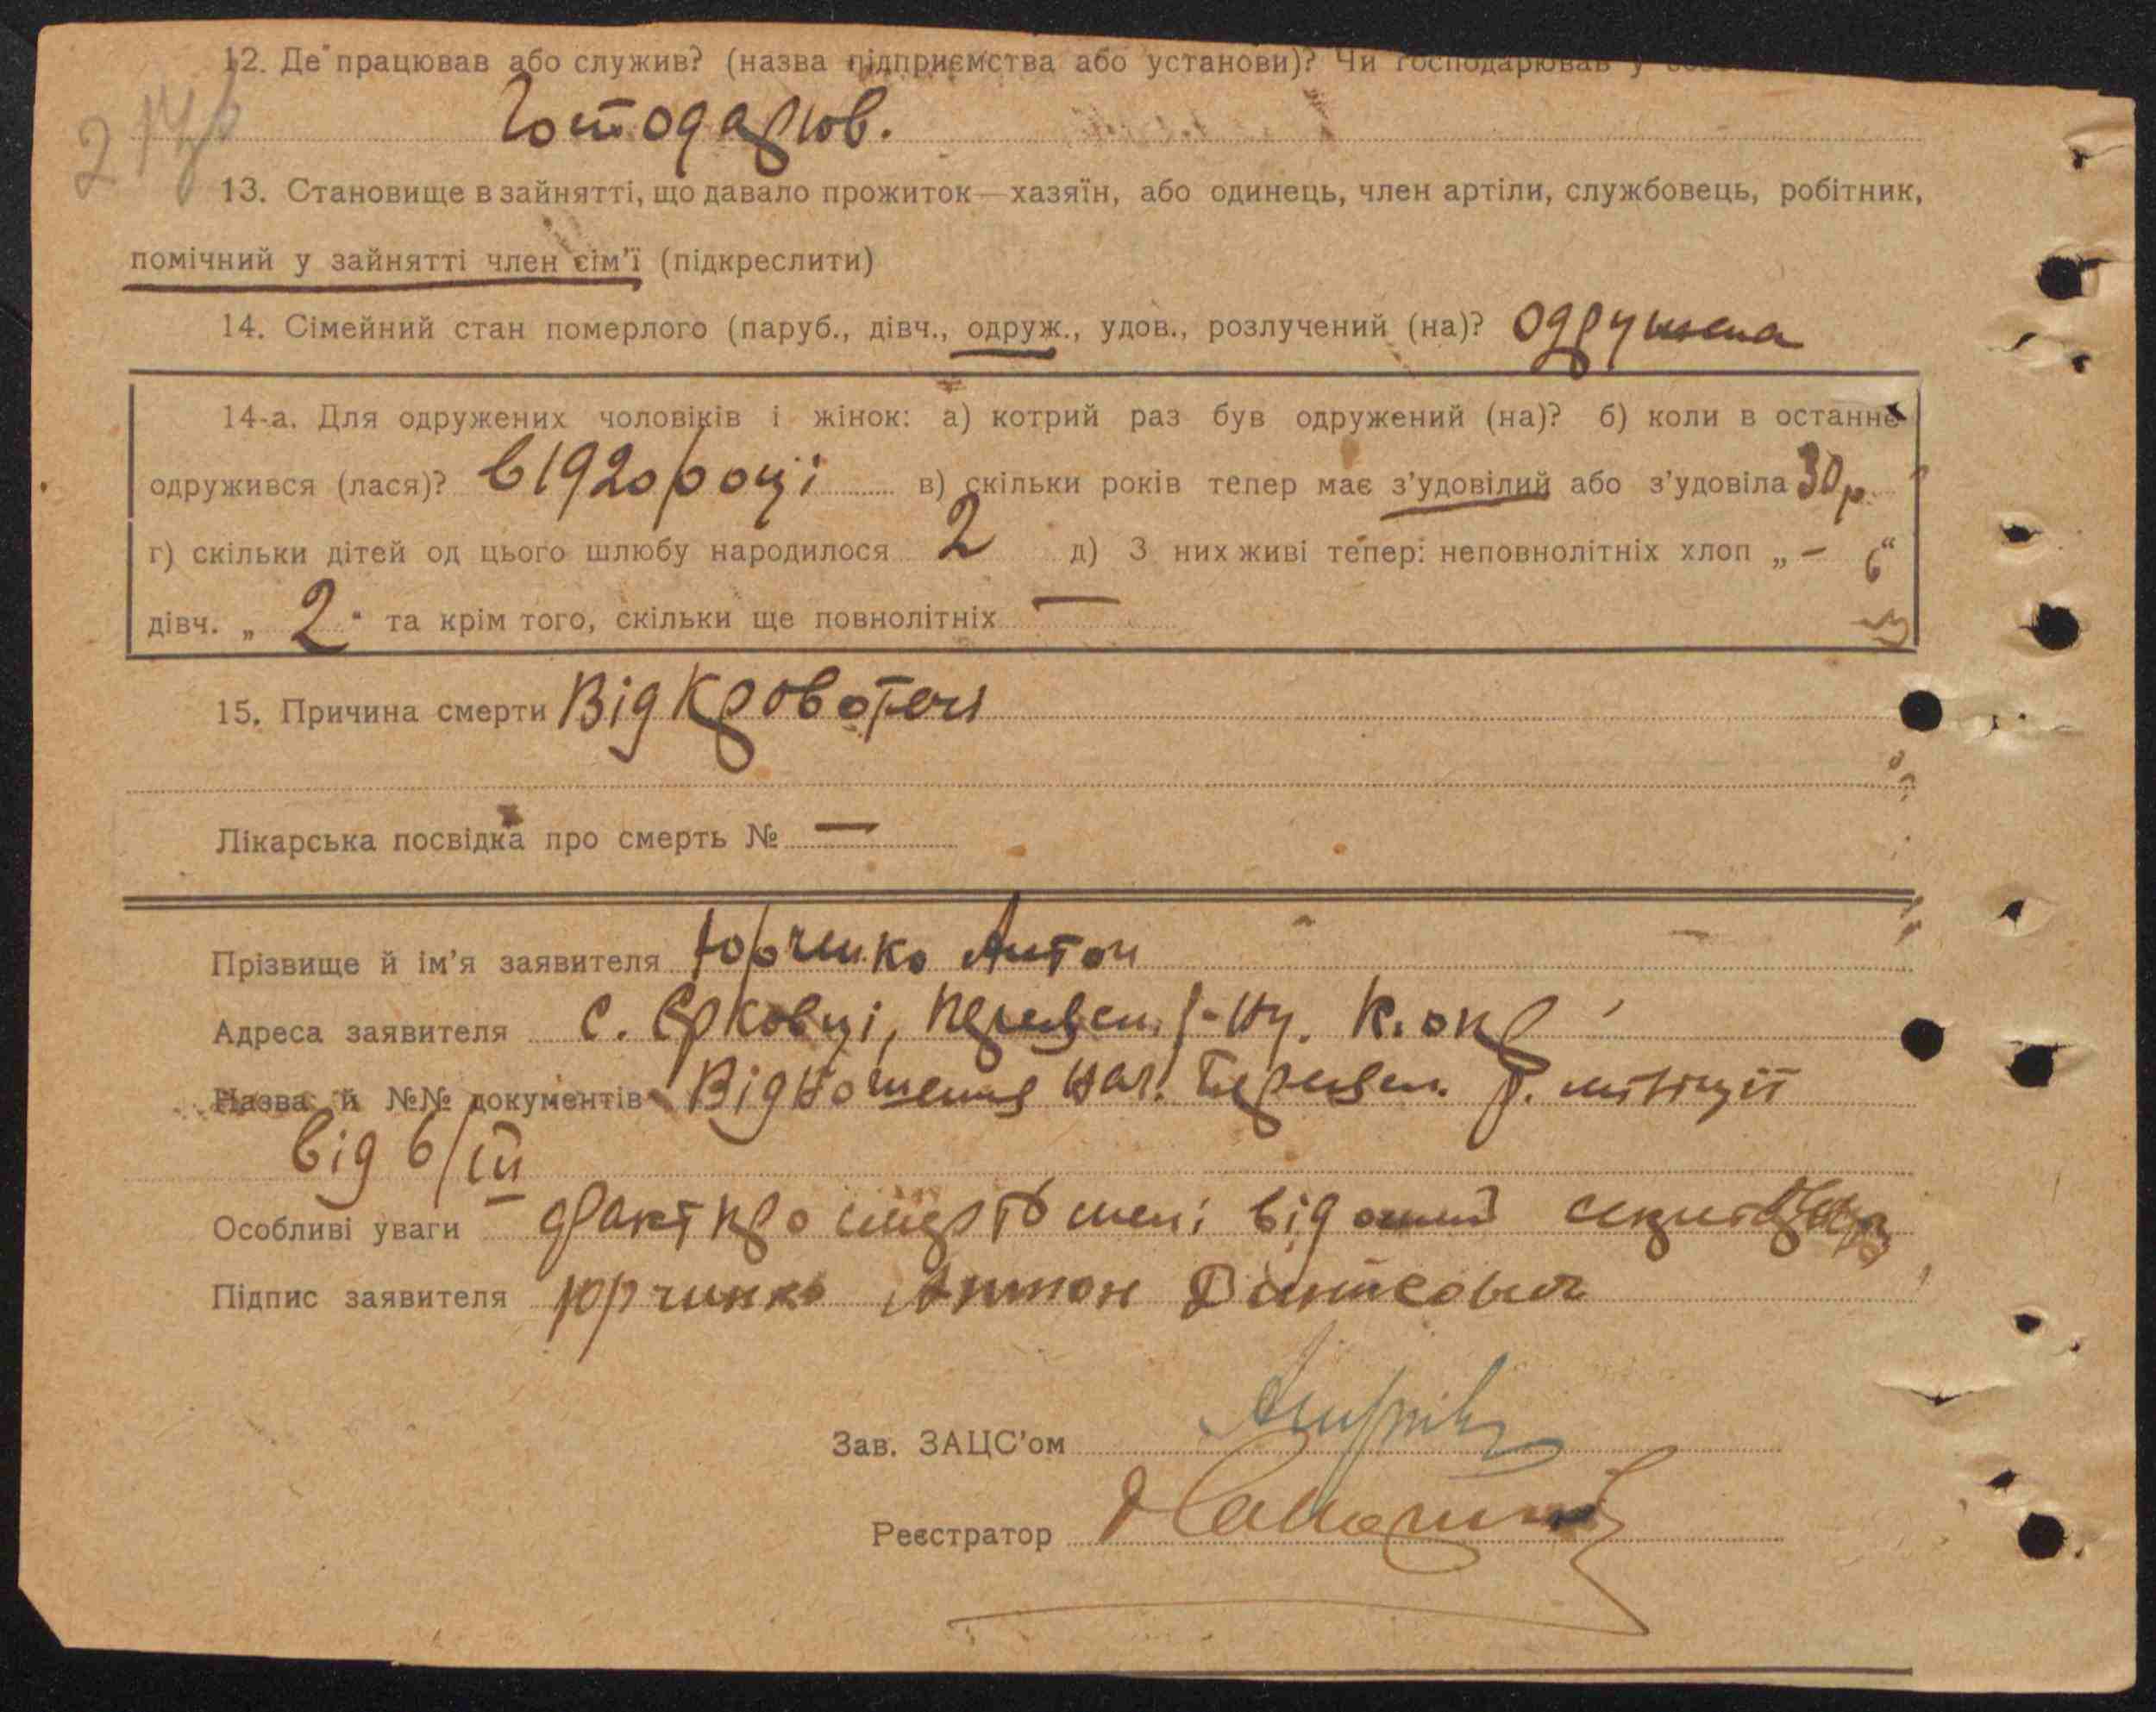 12. Де працював або служив? (назва підприємства або установи)? Чи господарював у
Господарюв.
13. Становище в зайнятті, що давало прожиток—хазяїн, або одинець, член артіли, службовець, робітник,
помічний у зайнятті член сім'ї (підкреслити)
14. Сімейний стан померлого (паруб., дівч., одруж., удов., розлучений (на)? одружена
14-а. Для одружених чоловіків і жінок: а) котрий раз був одружений (на)? б) коли в останнє
одружився (лася)? в 1920 році в) скільки років тепер має з'удовілий або з'удовіла 30 р.
г) скільки дітей од цього шлюбу народилося 2 д) З них живі тепер: неповнолітніх хлоп „ — “
дівч. „ 2 “ та крім того, скільки ще повнолітніх —
15. Причина смерти Від кровотечі
Лікарська посвідка про смерть № —
Прізвище й ім'я заявителя Юрченко Антон
Адреса заявителя с. Єрковці, Переясл. р-ну. К. окр
Назва й №№ документів Відношення нач. Переясл. р. міліції
від 6/III
Особливі уваги факт про смерть
Підпис заявителя Юрчинко Антон
Зав. ЗАЦС'ом
Реєстратор